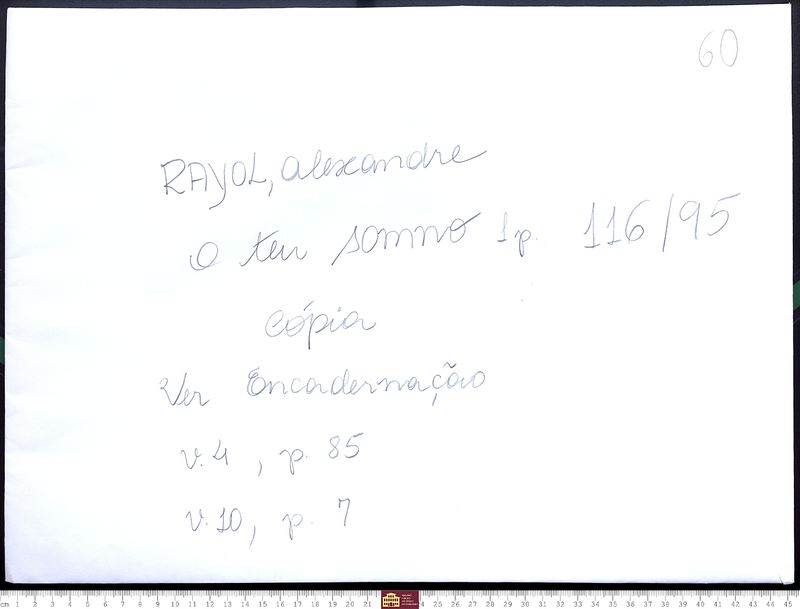 60
RAYOL, Alexandre
O teu somno 1p. 116/95
Cópia
Ver Encadernação
v.4, p. 85
v.10, p. 7
cm 1 2 3 4 5 6 7 8 9 10 11 12 13 14 15 16 17 18 19 20 21 24 25 26 27 28 29 30 31 32 33 34 35 36 37 38 39 40 41 42 43 44 45